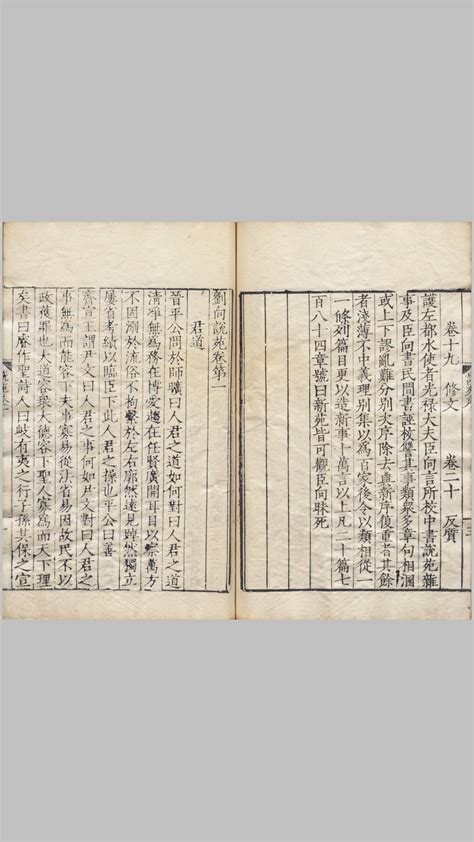 卷十九 修文 卷二十 反質
護左都水使者光祿大夫臣向言所校中書說苑雜
事及臣向書民間書誣校讐其事類衆多章句相溷
或上下謬亂難分別次序除去與新序復重者其餘
者淺薄不中義理別集以為百家後令以類相從一
一條列篇目更以造新事十萬言以上凡二十篇七
百八十四章號曰新苑皆可觀臣向昧死
劉向說苑卷第一
君道
晉平公問於師曠曰人君之道如何對曰人君之道
清淨無為務在博愛趨在任賢廣開耳目以察萬方
不固溺於流俗不拘繫於左右廓然遠見踔然獨立
屢省考績以臨臣下此人君之操也平公曰善
齊宣王謂尹文曰人君之事何如尹文對曰人君之
事無為而能容下夫事寡易從法省易因故民不以
政獲罪也大道容衆大德容下聖人寡為而天下理
矣書曰睿作聖詩人曰岐有夷之行子孫其保之宣